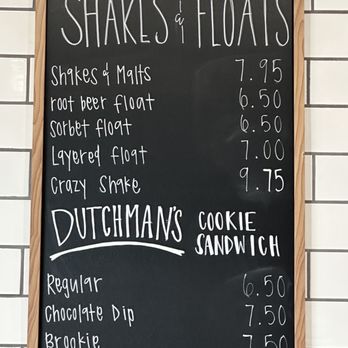 SHAKES & FLOATS
Shakes & Malts 7.95
root beer float 6.50
Sorbet float 6.50
Layered float 7.00
Crazy Shake 9.75
DUTCHMAN'S COOKIE SANDWICH
Regular 6.50
Chocolate Dip 7.50
Brookie 7.50